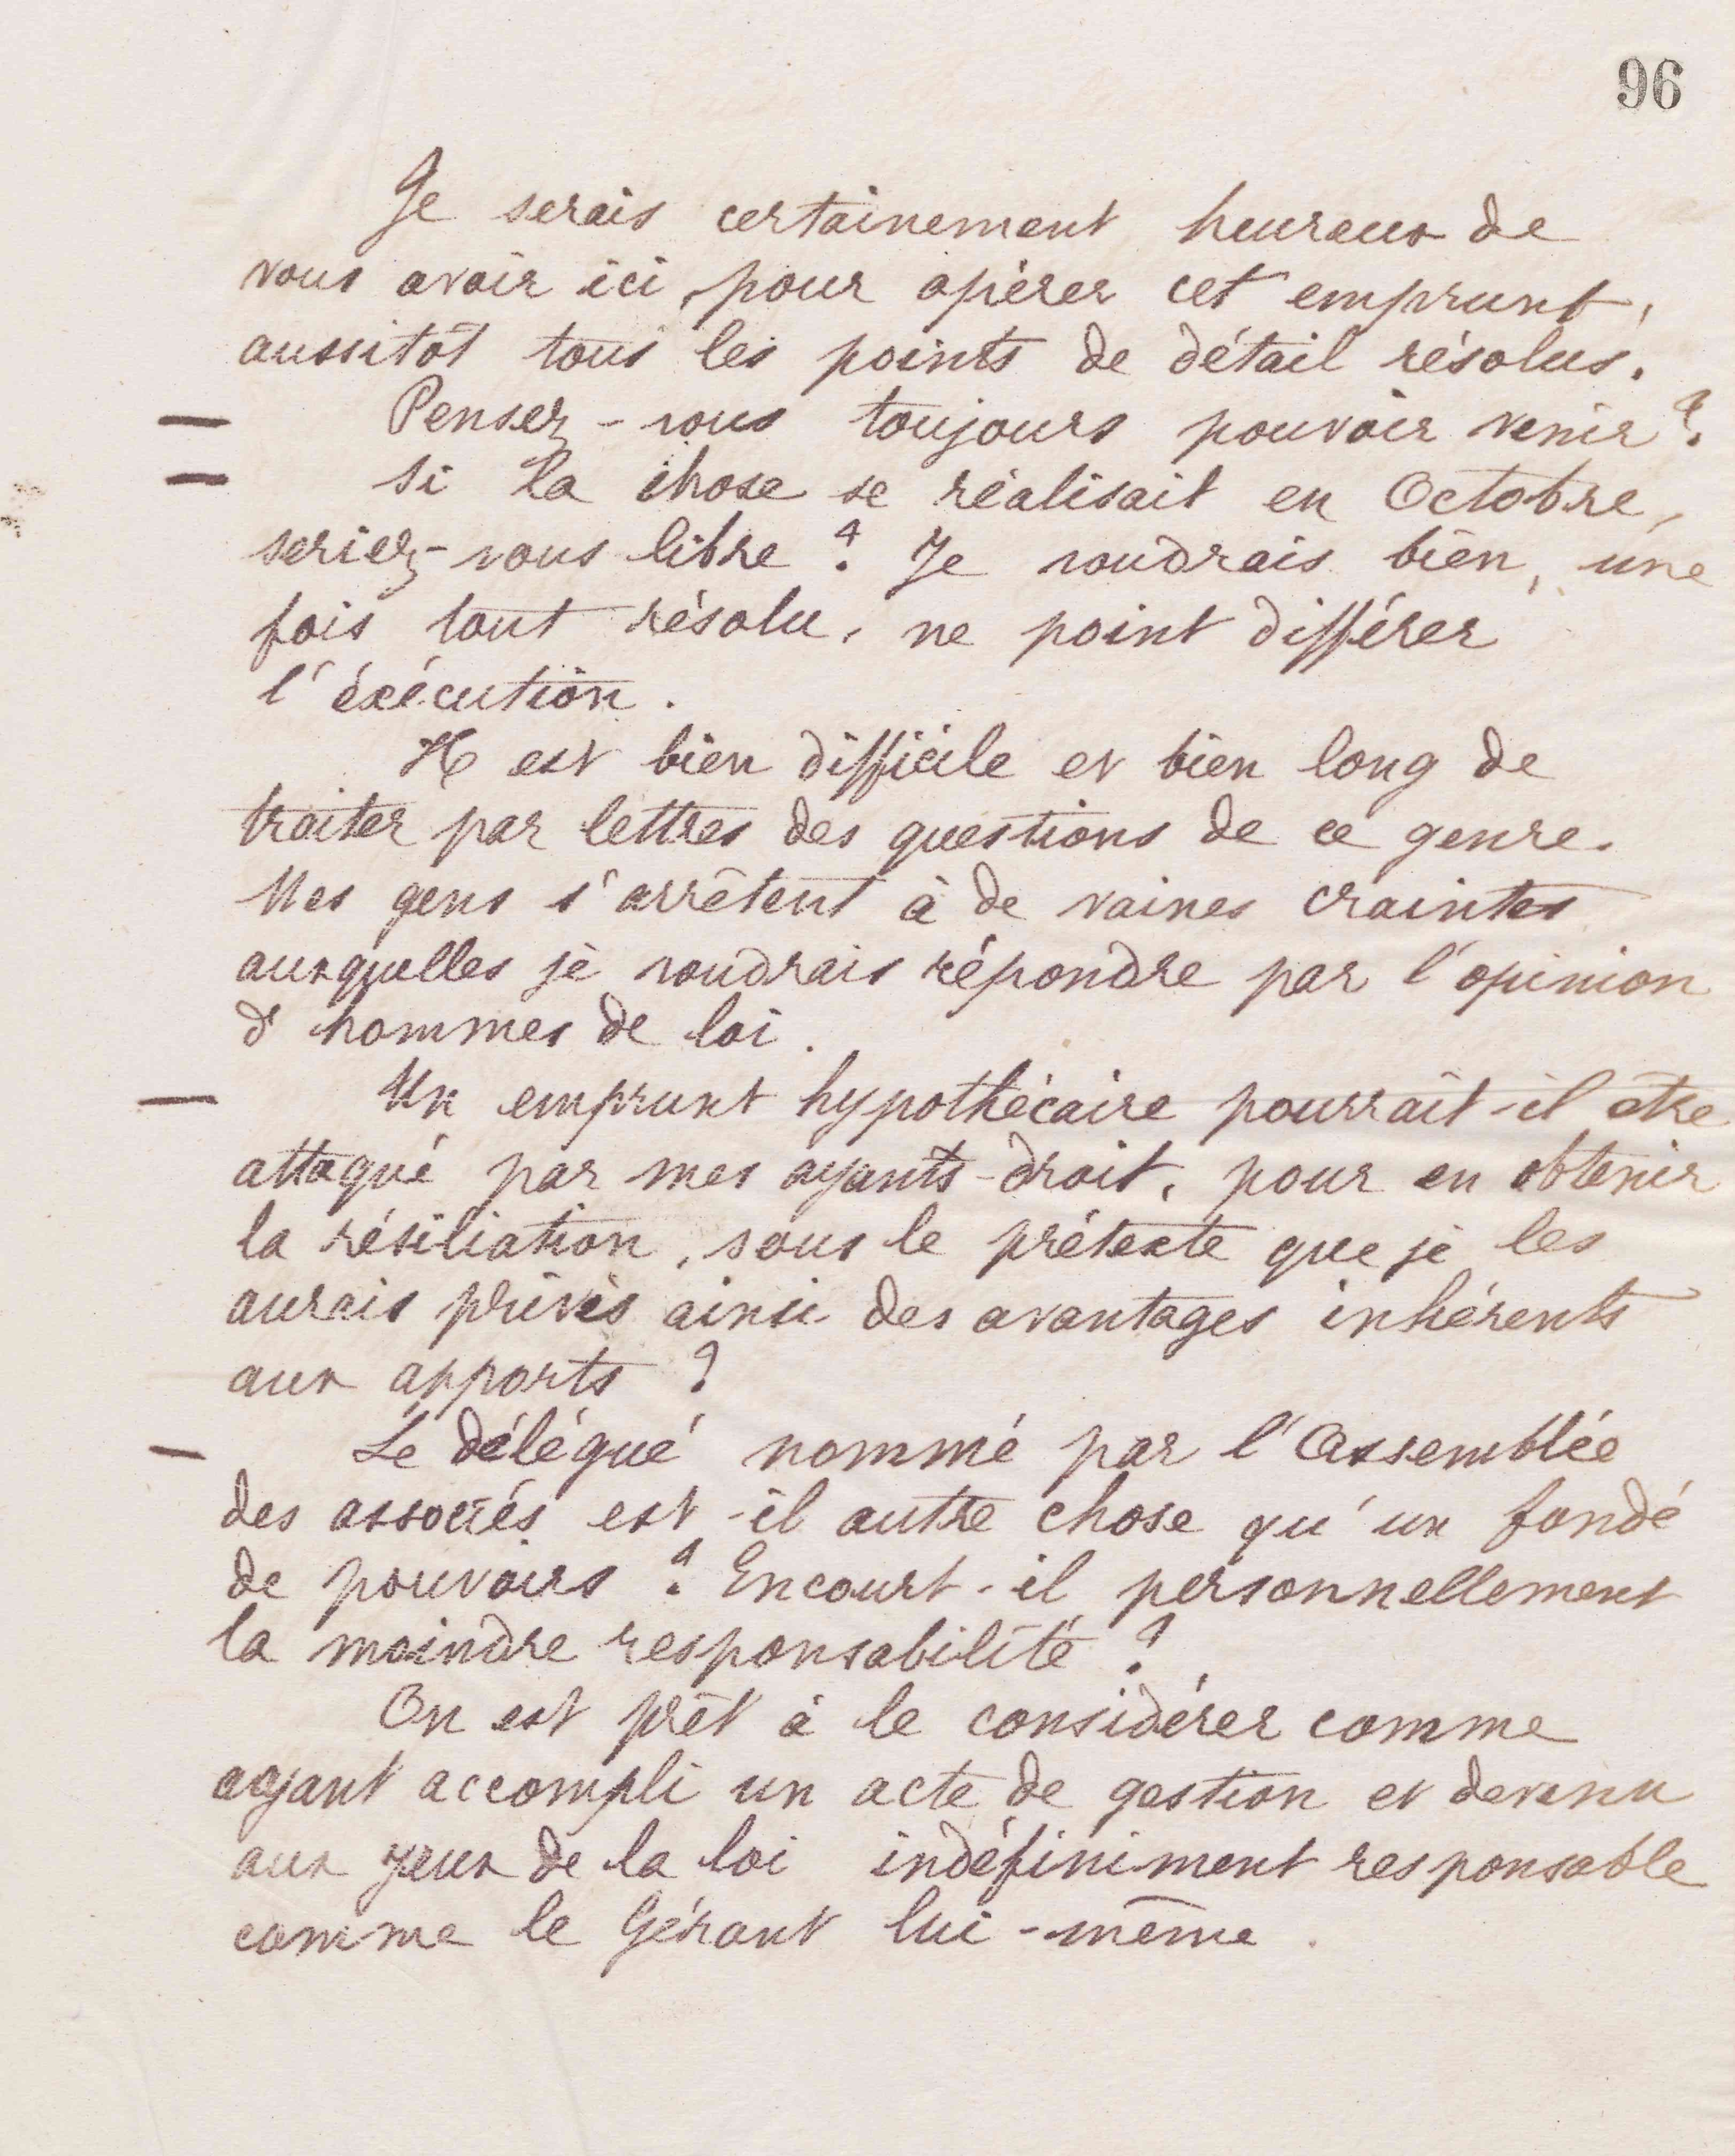 96
Je serais certainement heureux de
vous avoir ici, pour opérer cet emprunt,
aussitôt tous les points de détail résolus.
— Pensez-vous toujours pouvoir venir ?
— Si la chose se réalisait en Octobre,
seriez-vous libre ? Je voudrais bien, une
fois tout résolu, ne point différer
l'éxécution.
Il est bien difficile et bien long de
traiter par lettres des questions de ce genre.
Mes gens s'arrêtent à de vaines craintes
auxquelles je voudrais répondre par l'opinion
d'hommes de loi.
— Un emprunt hypothécaire pourrait-il être
attaqué par mes ayants-droit, pour en obtenir
la résiliation, sous le prétexte que je les
aurais privés ainsi des avantages inhérents
aux apports ?
— Le délégué nommé par l'Assemblée
des associés est-il autre chose qu'un fondé
de pouvoirs ? Encourt-il personnellement
la moindre responsabilité ?
On est prêt à le considérer comme
ayant accompli un acte de gestion et devenu
aux yeux de la loi indéfiniment responsable
comme le Gérant lui-même.